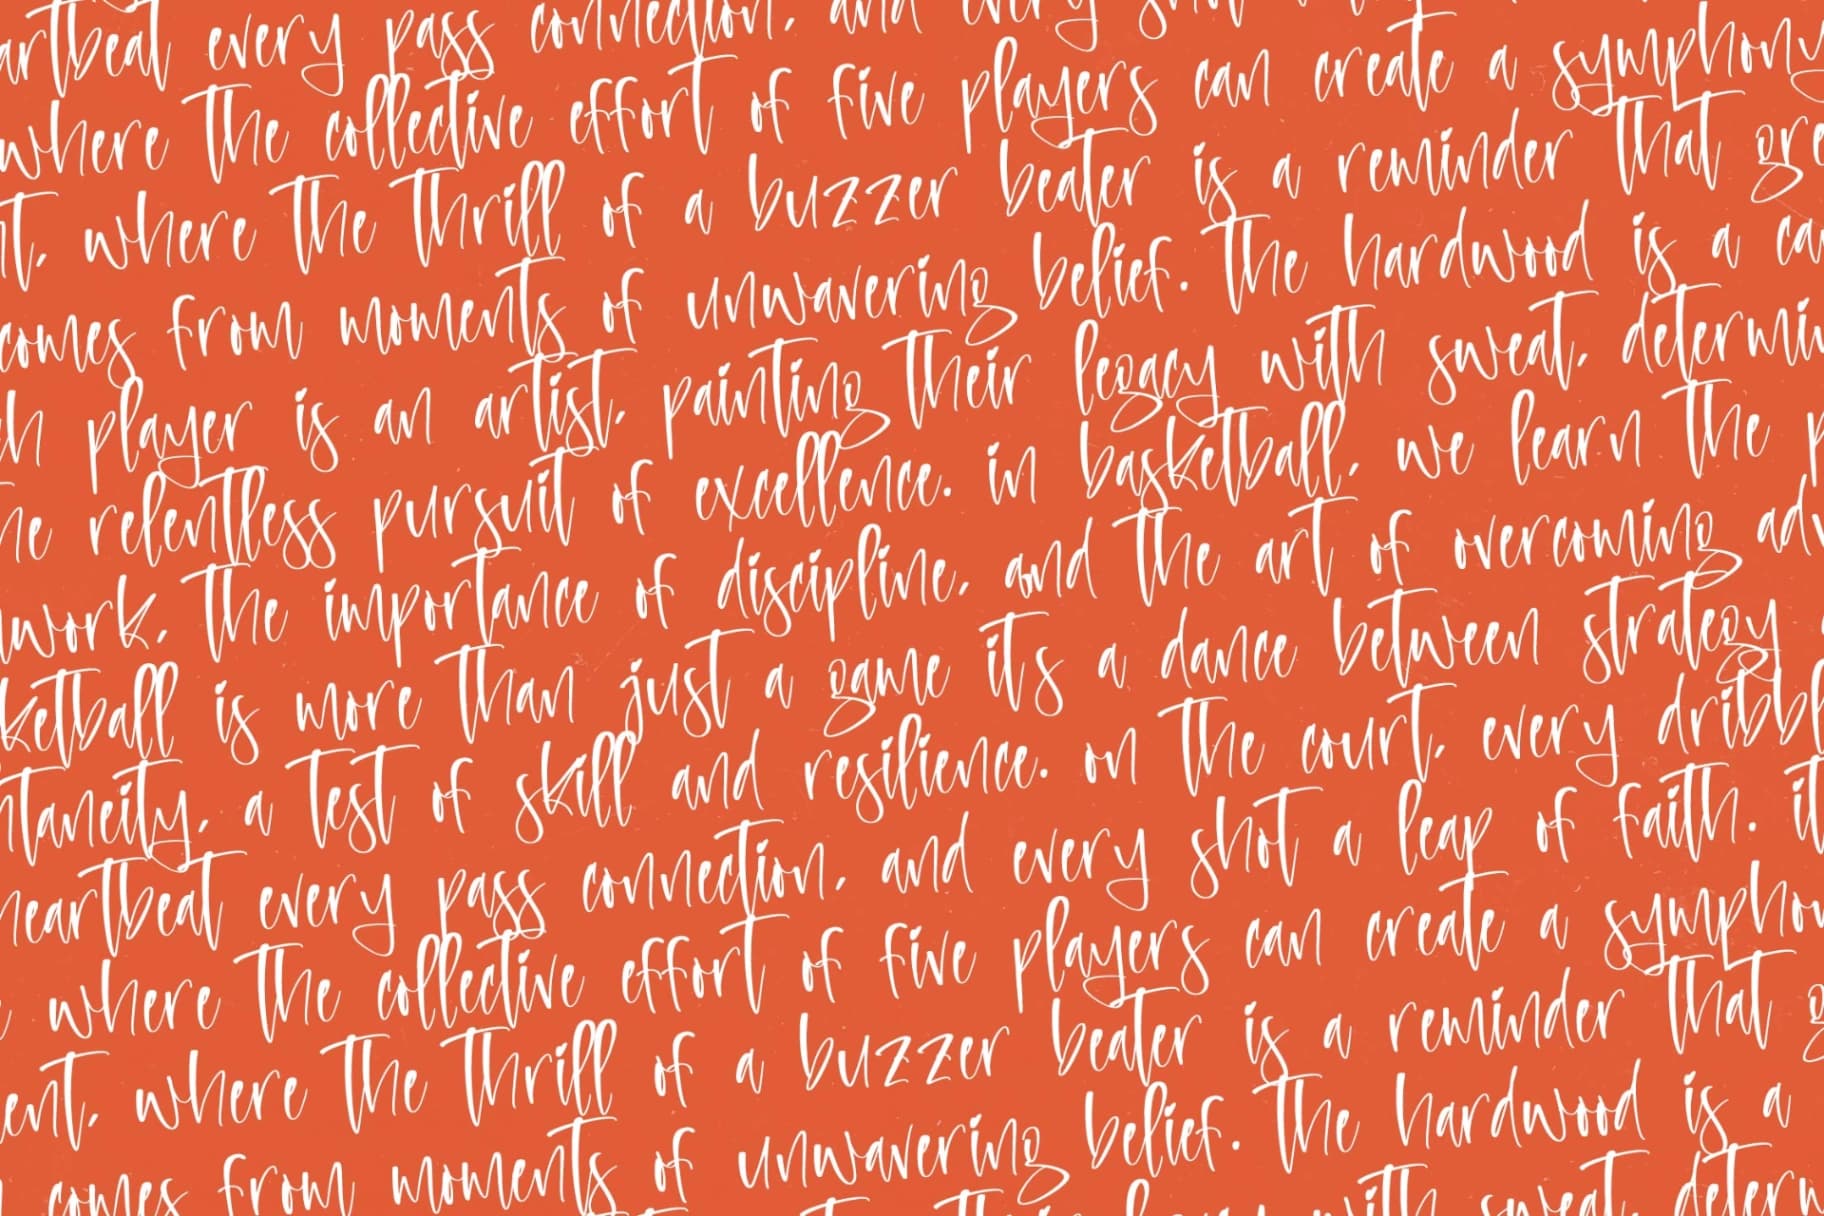 every pass connection, and every shot
where the collective effort of five players can create a symphony
where the thrill of a buzzer beater is a reminder that
comes from moments of unwavering belief. the hardwood is a
player is an artist, painting their legacy with sweat,
relentless pursuit of excellence. in basketball, we learn the
the importance of discipline, and the art of overcoming
is more than just a game it's a dance between strategy
a test of skill and resilience. on the court, every
heartbeat every pass connection, and every shot a leap of faith.
where the collective effort of five players can create a
where the thrill of a buzzer beater is a reminder that
comes from moments of unwavering belief. the hardwood is a
with sweat,